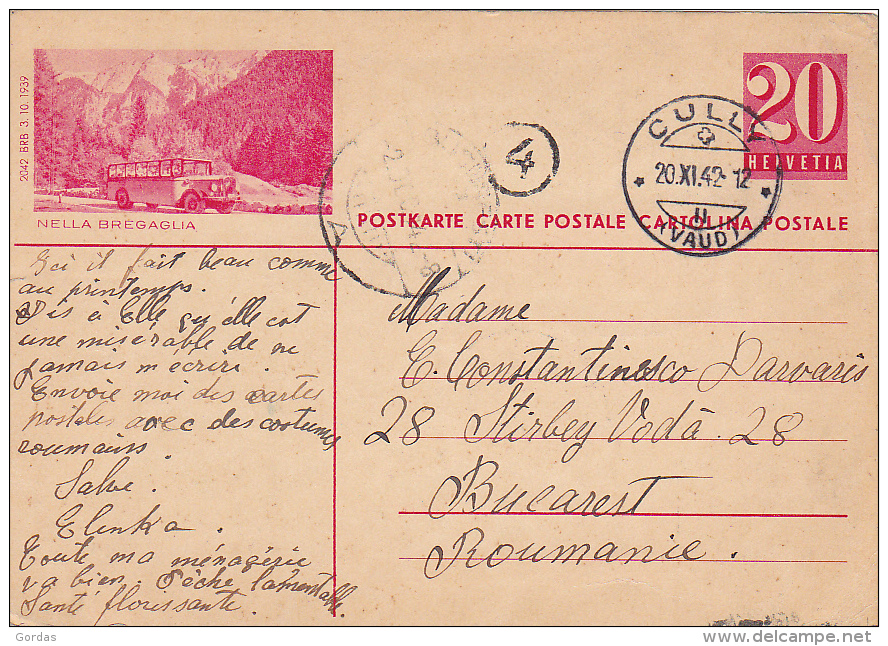 2042 BRB 3.10.1939
NELLA BREGAGLIA
4
CULLY
20.XI.42-12
(VAUD)
20
HELVETIA
POSTKARTE CARTE POSTALE CARTOLINA POSTALE
Ici il fait beau comme
au printemps.
Dis à Elle qu'elle est
une misérable de ne
jamais m'écrire.
Envoie moi des cartes
postales avec des costumes
roumains.
Salve.
Elenka.
Toute ma ménagerie
va bien. Pêche lamentable.
Santé florissante.
Madame
E. Constantinesco Darvaris
28 Stirbey Vodă 28
Bucarest
Roumanie.
Gordas
delcampe.net